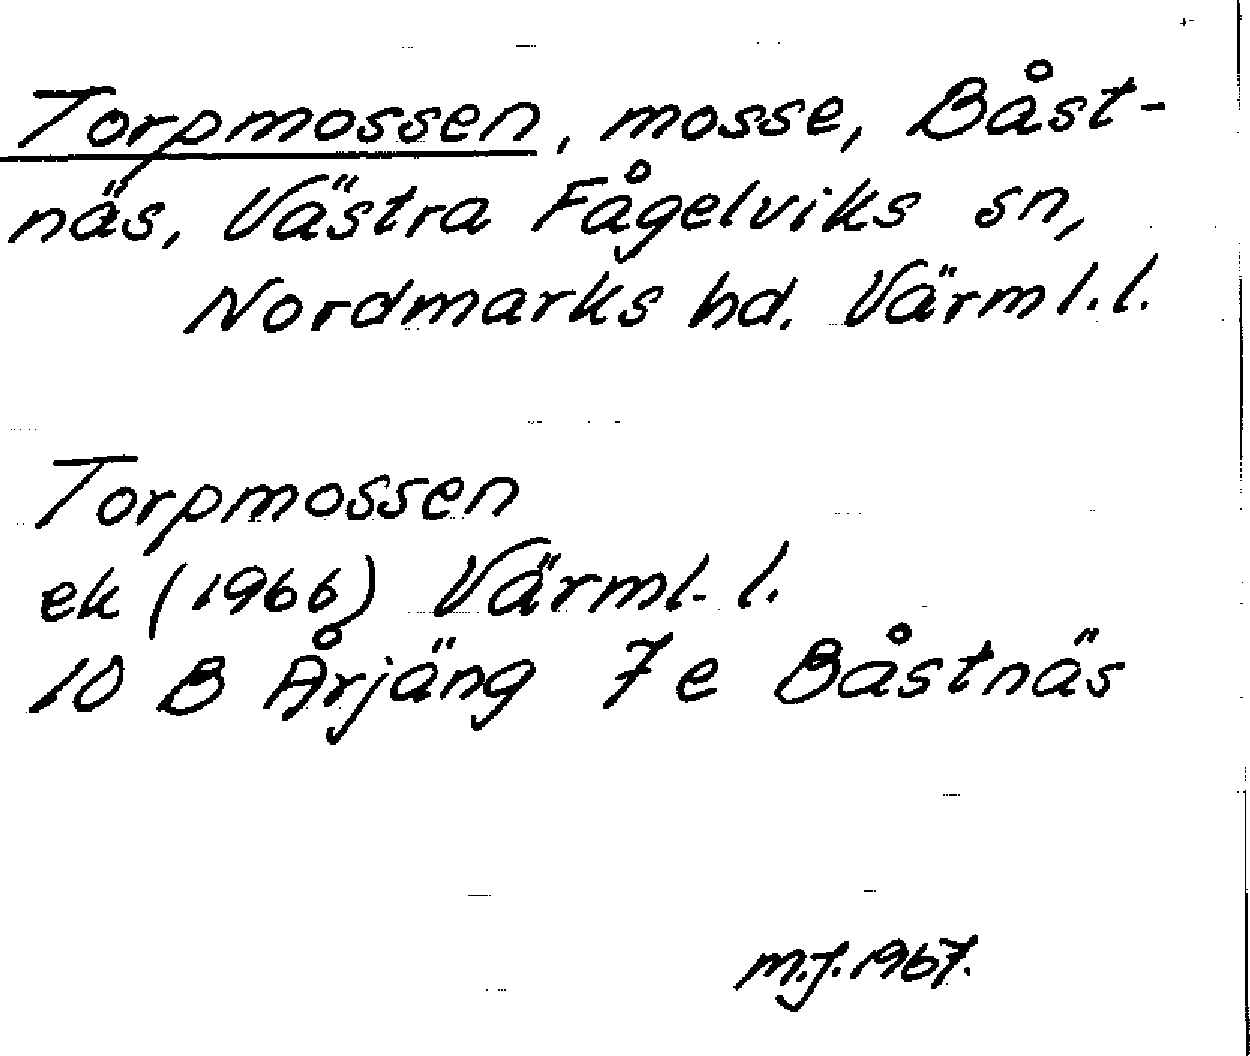 Torpmossen, mosse, Båst-
näs, Västra Fågelviks sn,
Nordmarks hd. Värml.l.
Torpmossen
ek (1966) Värml. l.
10 B Årjäng 7e Båstnäs
m.j. 1967.